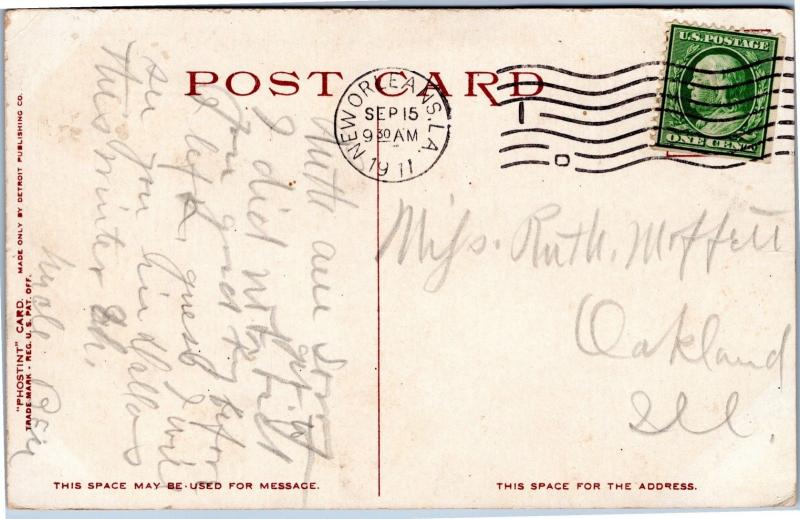 POST CARD
NEW ORLEANS, LA.
SEP 15
9 30 AM
1911
U.S. POSTAGE
ONE CENT
Miss. Ruth. Moffett
Oakland
Ill.
Ruth am sorry
I did not get to tell
you good by before
I left, guess I will
see you in
this winter
Uncle
"PHOSTINT" CARD. MADE ONLY BY DETROIT PUBLISHING CO.
TRADE MARK - REG. U. S. PAT. OFF.
THIS SPACE MAY BE USED FOR MESSAGE.
THIS SPACE FOR THE ADDRESS.